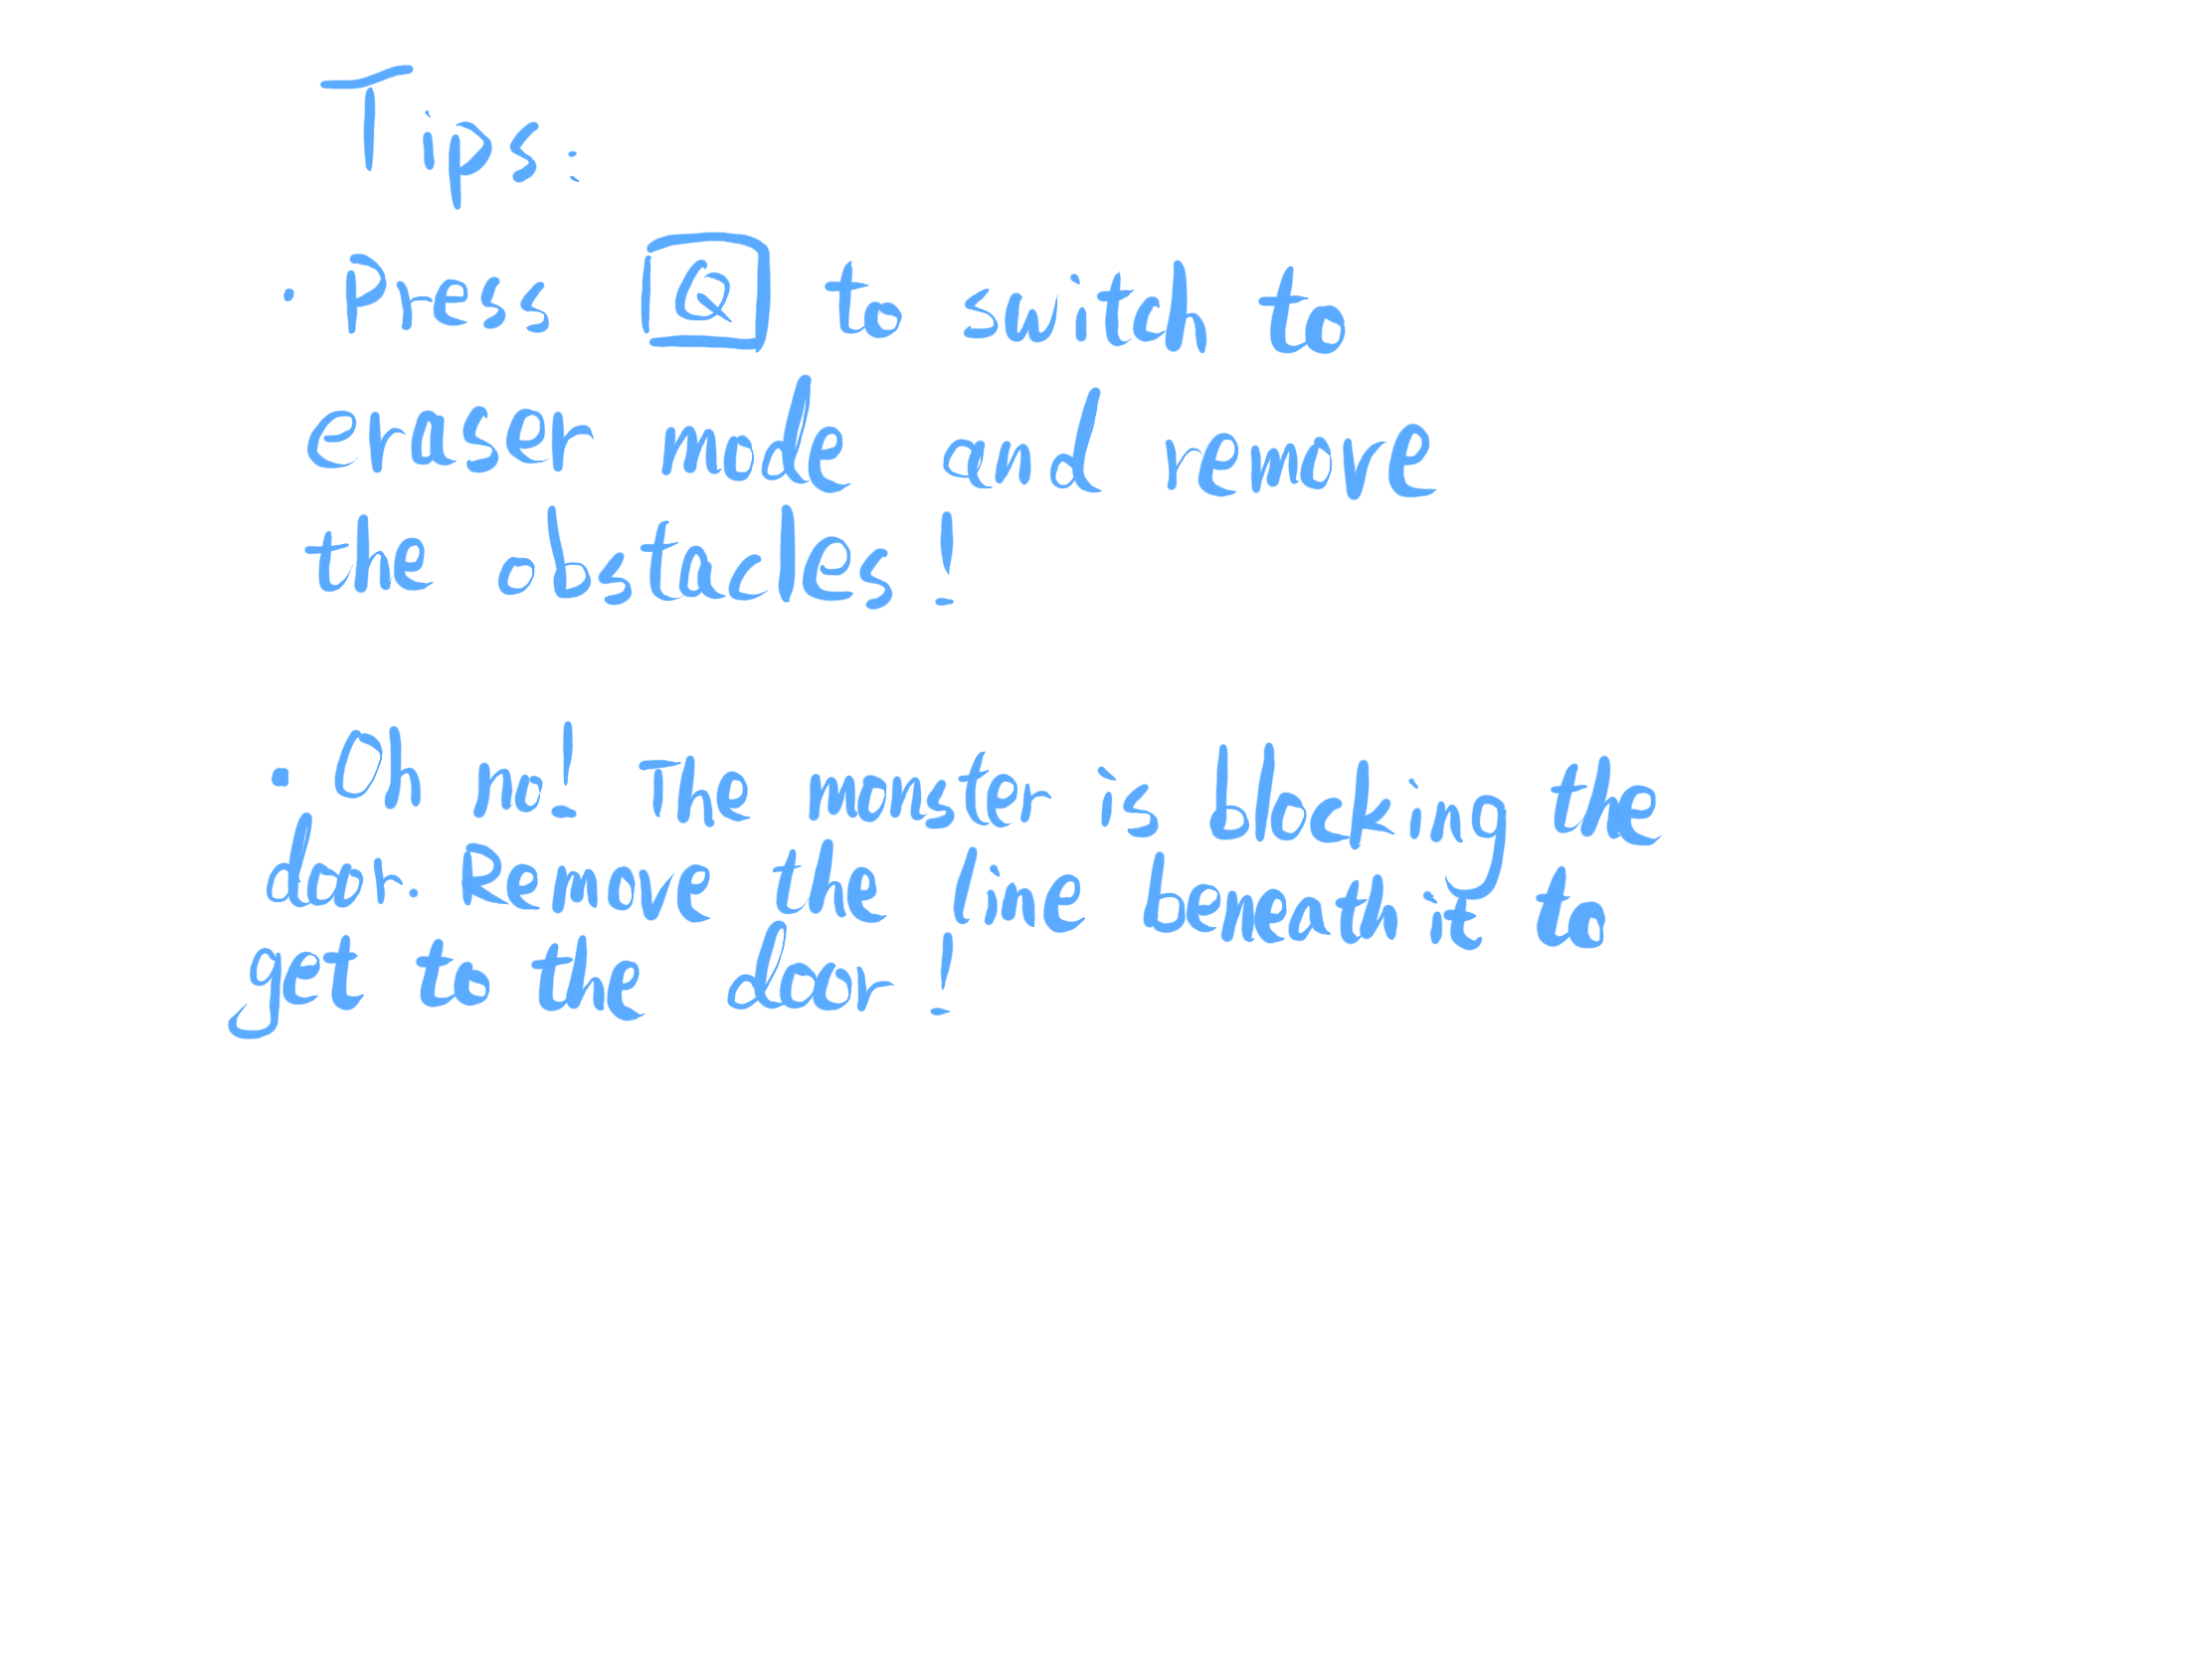 Tips:
· Press Q to switch to
eraser mode and remove
the obstacles!
· Oh no! The monster is blocking the
door. Remove the line beneath it to
get to the door!